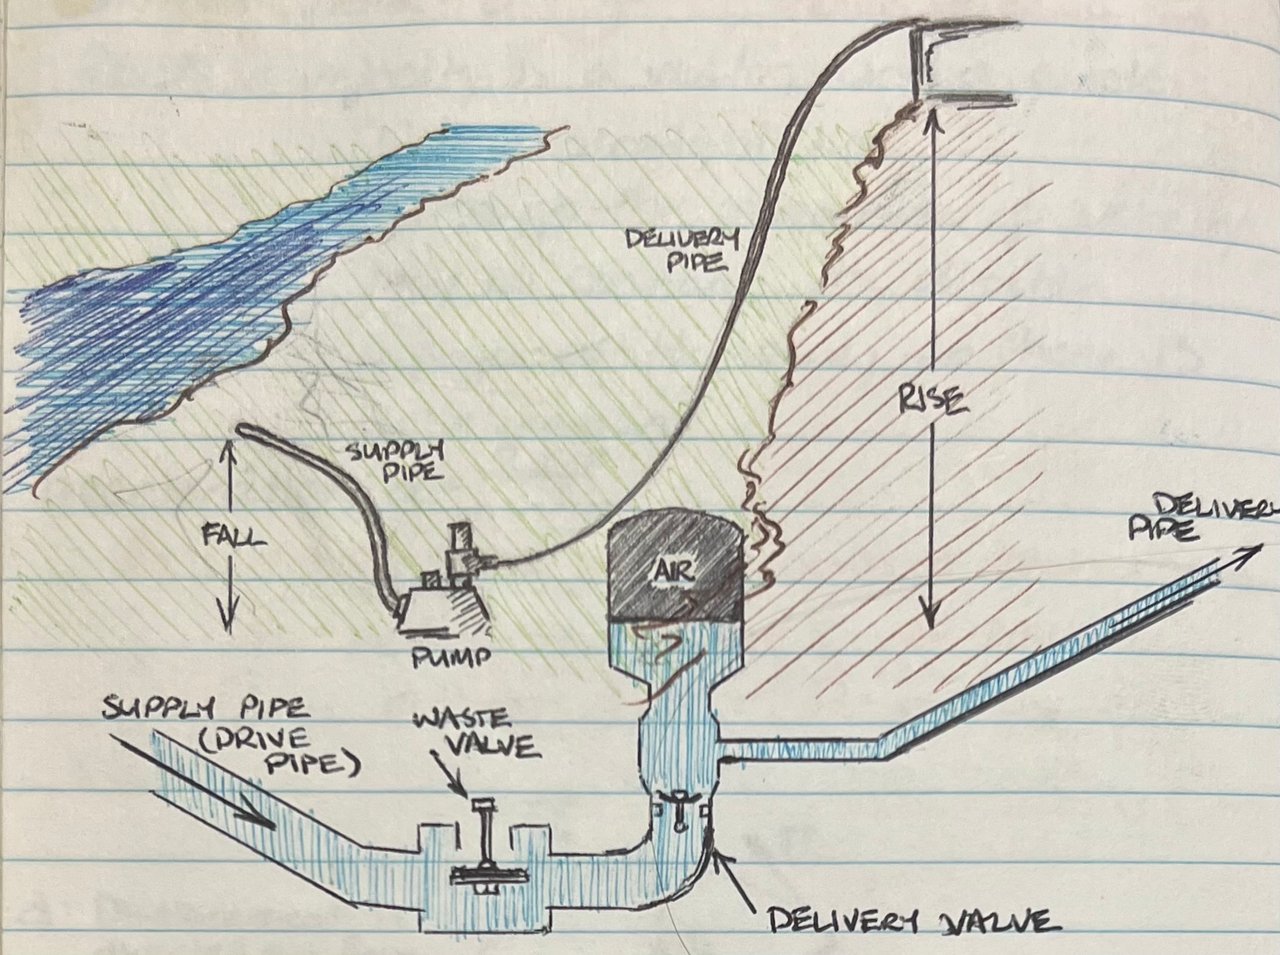 DELIVERY
PIPE
RISE
SUPPLY
PIPE
FALL
AIR
DELIVERY
PIPE
PUMP
SUPPLY PIPE
(DRIVE
PIPE)
WASTE
VALVE
DELIVERY VALVE